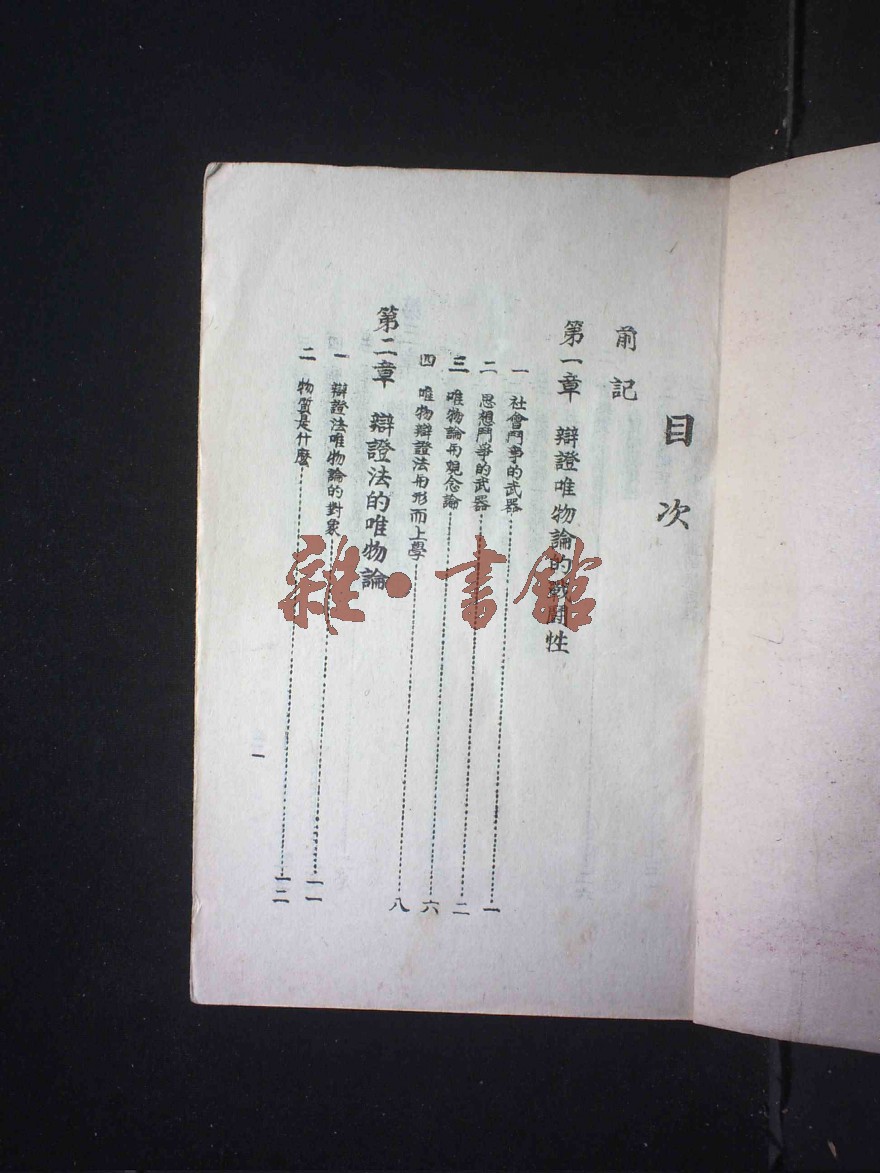 目次
前記
第一章 辯證唯物論的戰鬪性
一 社會鬥爭的武器 一
二 思想鬥爭的武器 二
三 唯物論與观念論 六
四 唯物辯證法与形而上學 八
第二章 辯證法的唯物論
一 辯證法唯物論的對象 一一
二 物質是什麼 一二
一
雜·書館